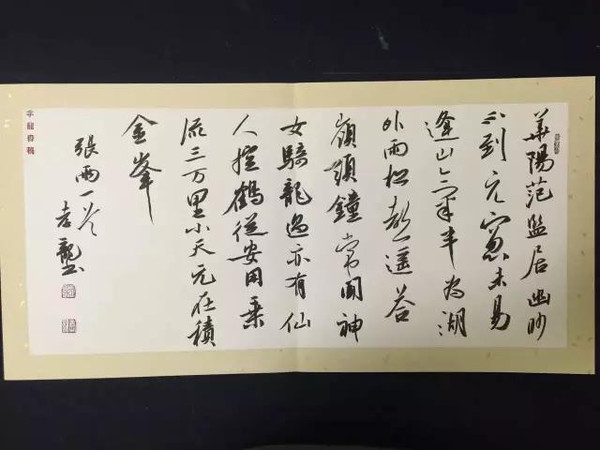 華陽范監居幽眇
不到元窻未易
逢山氣半為湖
外雨松聲遙答
嶺頭鐘常聞神
女騎龍過亦有仙
人控鶴從安用乘
流三万里小天元在積
金峯
張雨一首